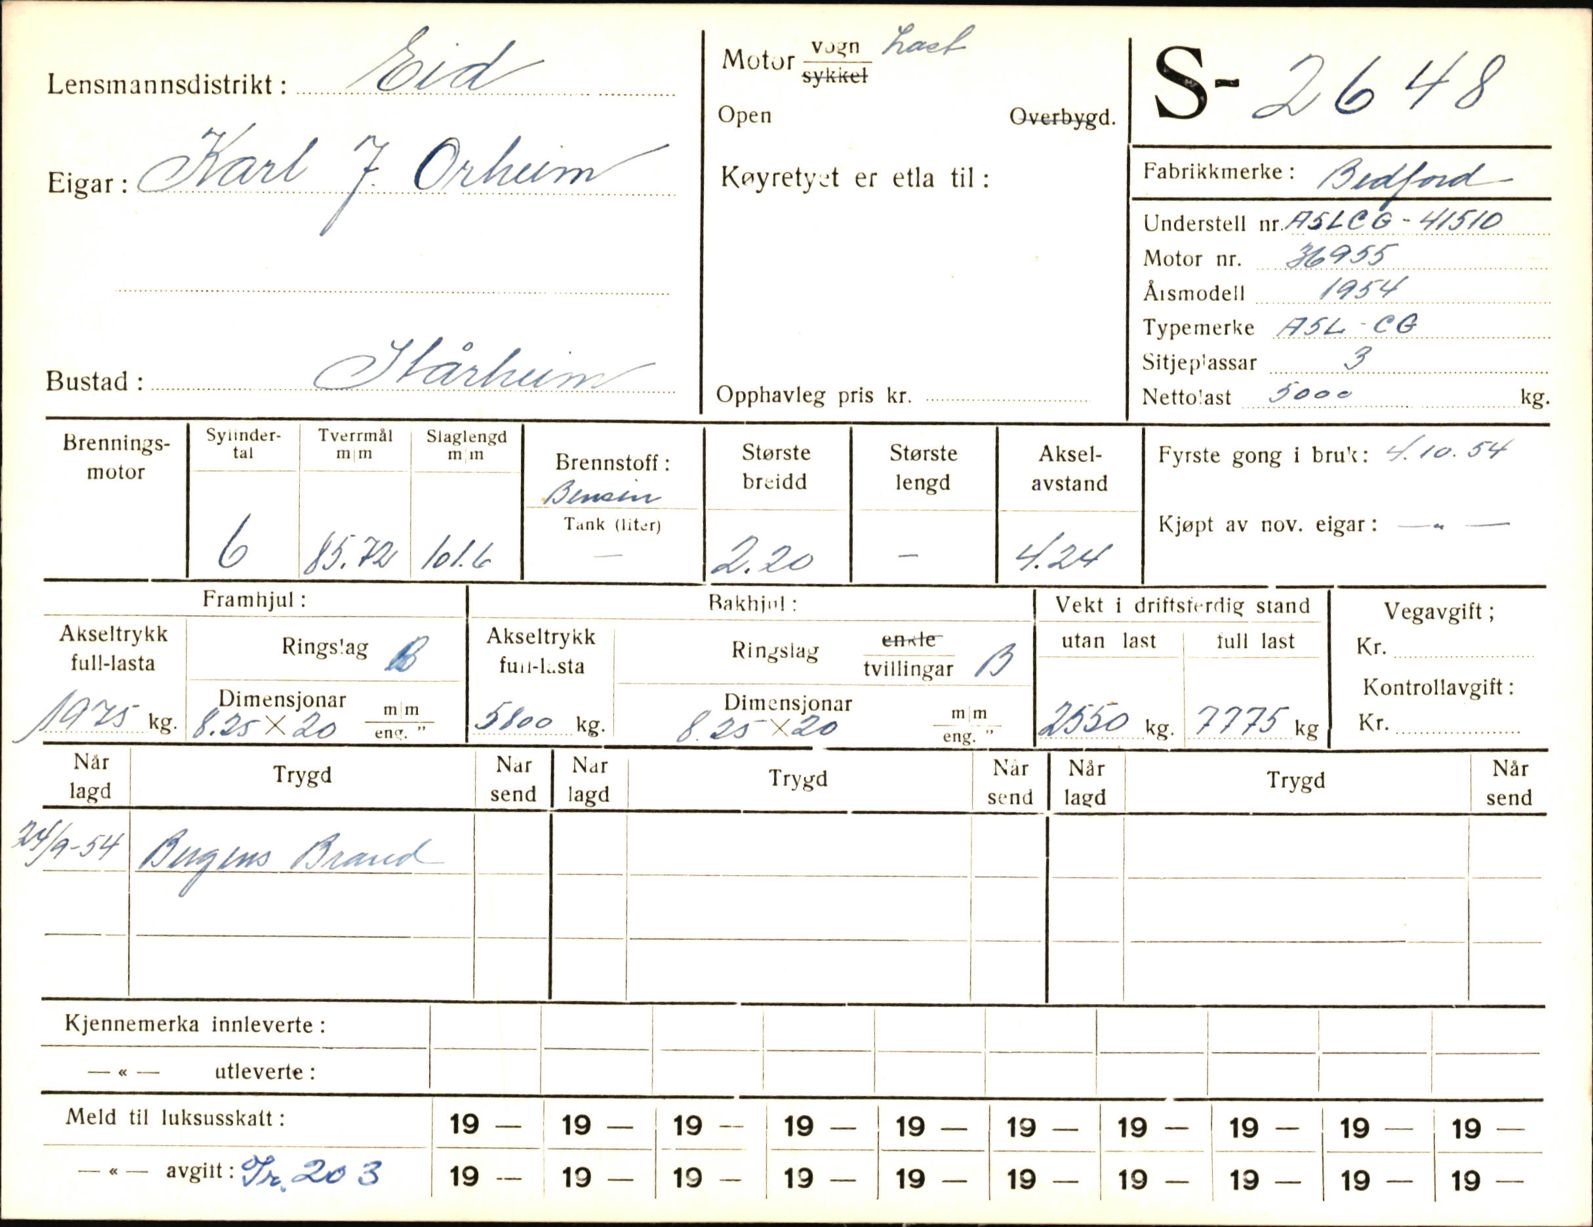 Lensmannsdistrikt: Eid
Eigar: Karl J. Orheim
Bustad: Stårheim
Motor vogn Last
sykkel
Open Overbygd.
Køyretyet er etla til:
Opphavleg pris kr.
S- 2648
Fabrikkmerke: Bedford
Understell nr. A5LCG-41510
Motor nr. 36955
Årsmodell 1954
Typemerke A5L-CG
Sitjeplassar 3
Nettolast 5000 kg.
Brennings-
motor
Sylinder-
tal
6
Tverrmål
m|m
85.72
Slaglengd
m|m
101.6
Brennstoff:
Bensin
Tank (liter)
—
Største
breidd
2.20
Største
lengd
—
Aksel-
avstand
4.24
Fyrste gong i bruk: 4.10.54
Kjøpt av nov. eigar: — " —
Framhjul:
Akseltrykk
full-lasta
1975 kg.
Ringslag B
Dimensjonar m|m
8.25 × 20 eng. "
Bakhjul:
Akseltrykk
full-lasta
5800 kg.
Ringslag enkle
tvillingar B
Dimensjonar m|m
8.25 × 20 eng. "
Vekt i driftsferdig stand
utan last full last
2550 kg. 7775 kg
Vegavgift;
Kr.
Kontrollavgift:
Kr.
Når
lagd Trygd Når
send Når
lagd Trygd Når
send Når
lagd Trygd Når
send
24/9-54 Bergens Brand
Kjennemerka innleverte:
— « — utleverte:
Meld til luksusskatt: 19 — 19 — 19 — 19 — 19 — 19 — 19 — 19 — 19 — 19 —
— « — avgift: Tr. 203 19 — 19 — 19 — 19 — 19 — 19 — 19 — 19 — 19 — 19 —